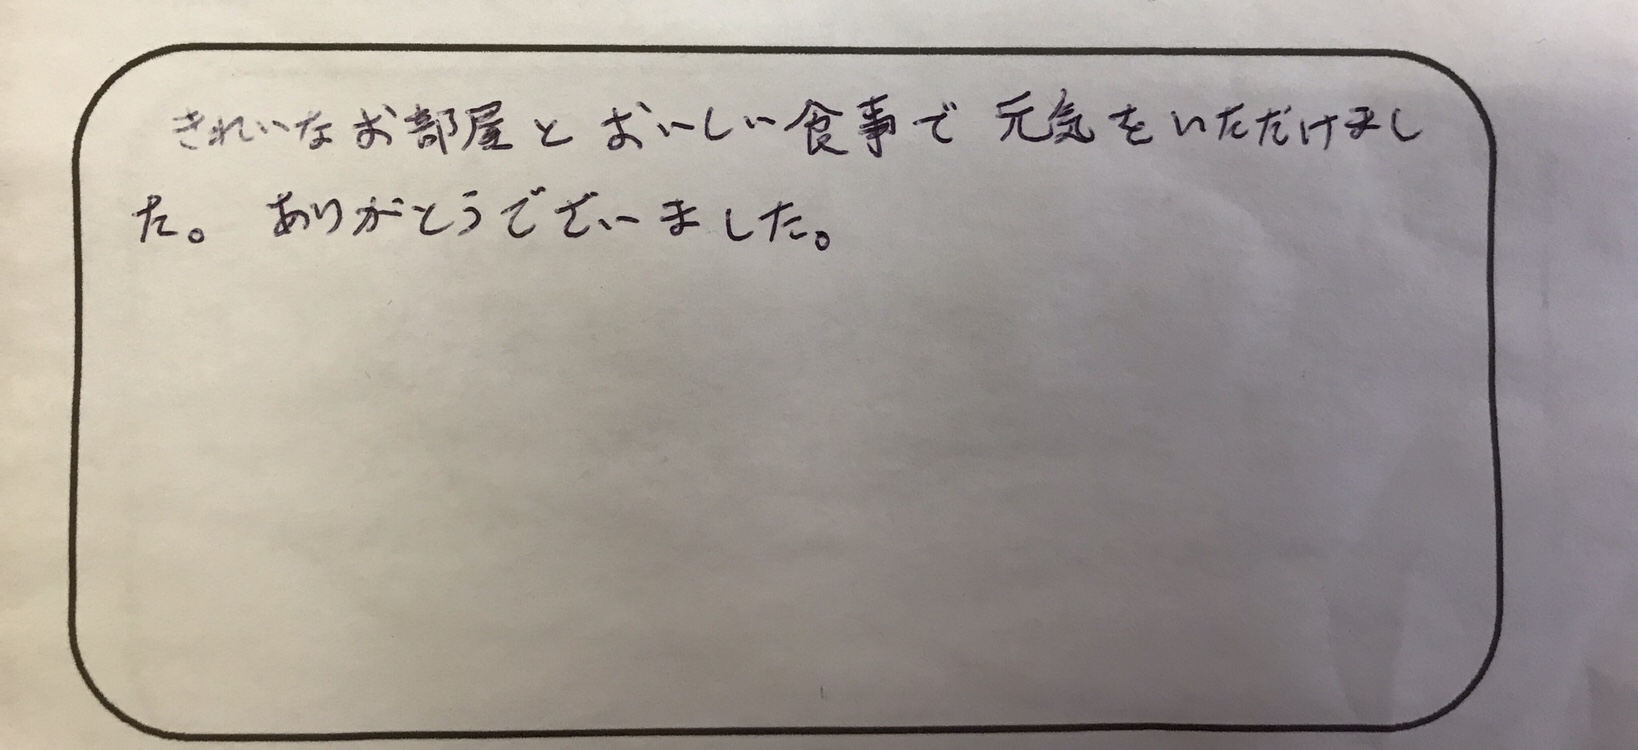 きれいなお部屋とおいしい食事で元気をいただけまし
た。 ありがとうございました。